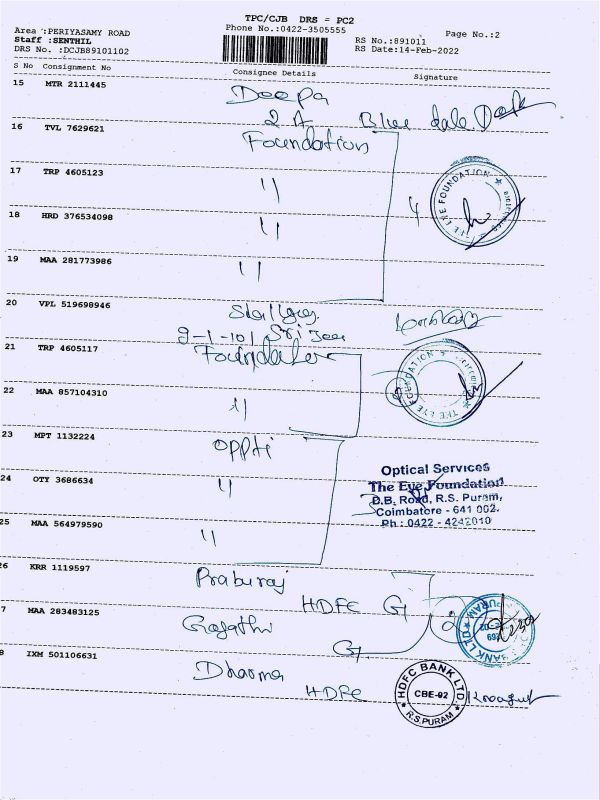 TPC/CJB DRS = PC2
Area :PERIYASAMY ROAD
Phone No.:0422-3505555
Page No.:2
Staff :SENTHIL
RS No.:891011
DRS No. :DCJB89101102
RS Date:14-Feb-2022
S No Consignment No Consignee Details Signature
15 MTR 2111445 Deepa
2A Blue dale
16 TVL 7629621 Foundation
17 TRP 4605123 "
THE EYE FOUNDATION
18 HRD 376534098 " 4
19 MAA 281773986 "
20 VPL 519698946
9-1-101 Sri
21 TRP 4605117 Foundation
THE EYE FOUNDATION
22 MAA 857104310 "
23 MPT 1132224 Oppti
24 OTY 3686634 "
Optical Services
The Eye Foundation
D.B. Road, R.S. Puram,
Coimbatore - 641 002.
Ph : 0422 - 4242010
25 MAA 564979590 "
26 KRR 1119597 Praburaj
HDFC G
7 MAA 283483125 Gayathri
G
BANK LTD PURAM
8 IXM 501106631 Dharma
HDFC
HDFC BANK LTD
CBE-02
R.S.PURAM